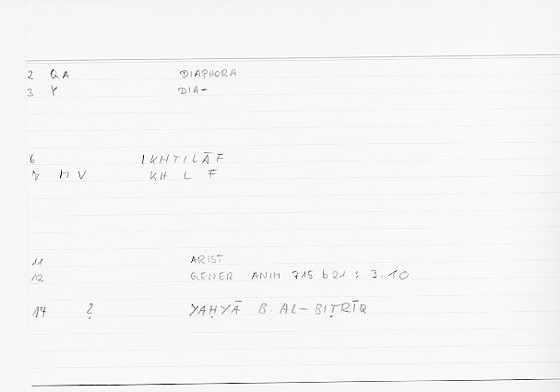 2 QA DIAPHORA
3 Y DIA-
6 IKHTILĀF
7 M V KH L F
11 ARIST
12 GENER ANIM 715 b21 : 3.10
14 2 YAḤYĀ B. AL-BIṬRĪQ